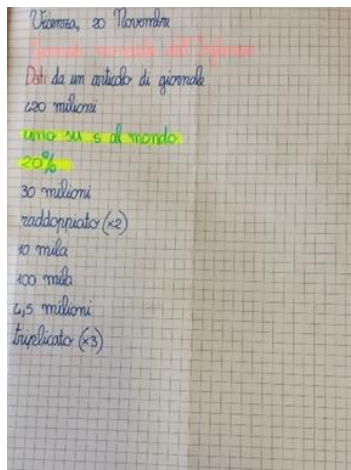 Vicenza, 20 Novembre
Giornata mondiale dell'Infanzia
Dati da un articolo di giornale
420 milioni
uno su 5 al mondo
20%
30 milioni
raddoppiato (×2)
10 mila
100 mila
4,5 milioni
triplicato (×3)